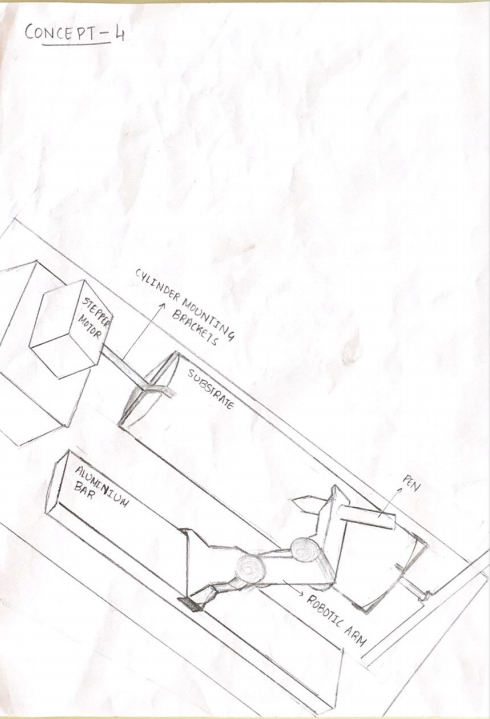 CONCEPT-4
CYLINDER MOUNTING
BRACKETS
STEPPER
MOTOR
SUBSTRATE
ALUMINIUM
BAR
PEN
ROBOTIC ARM